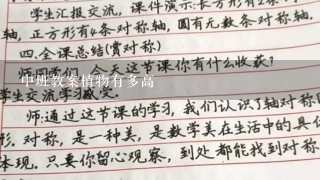 学生汇报交流，课件演示：长方形有2条
轴，正方形有4条对称轴，圆有无数条对称轴.
四.全课总结(赏对称)
今天这节课你有什么收获?
中班教案植物有多高
学生交流学习
师:通过这节课的学习，我们认识了轴对称
形.对称，是一种美，是数学美在生活中的具体
体现.只要你留心观察，到处都能找到对称